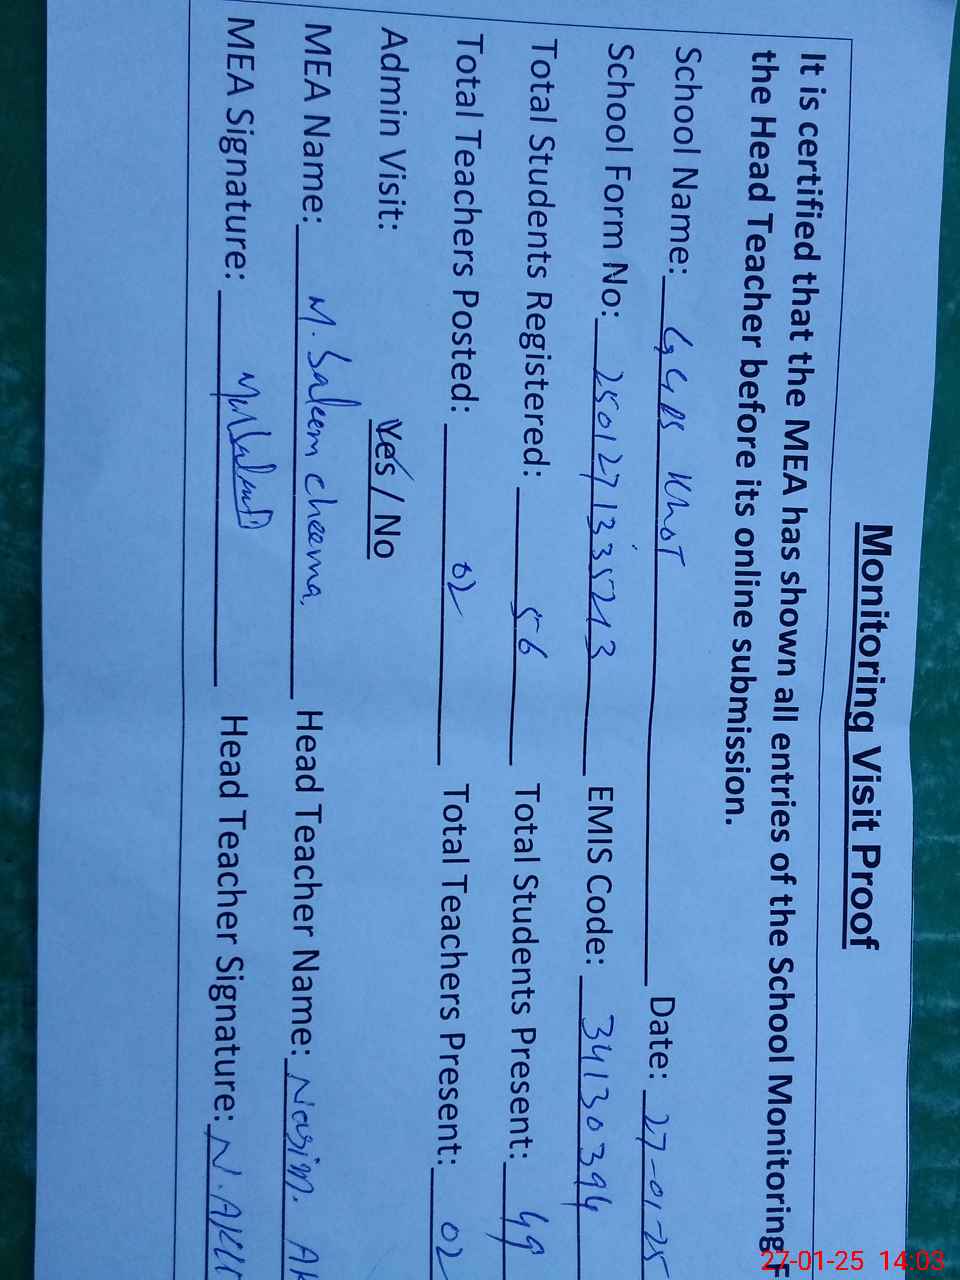 Monitoring Visit Proof
It is certified that the MEA has shown all entries of the School Monitoring F
the Head Teacher before its online submission.
School Name: GGPS Khot Date: 27-01-25
School Form No: 2501271335213 EMIS Code: 34130394
Total Students Registered: 56 Total Students Present: 49
Total Teachers Posted: 02 Total Teachers Present: 02
Admin Visit: Yes / No
MEA Name: M. Saleem cheema, Head Teacher Name: Nasim. Ak
MEA Signature: Head Teacher Signature: N. AKH
27-01-25 14:03